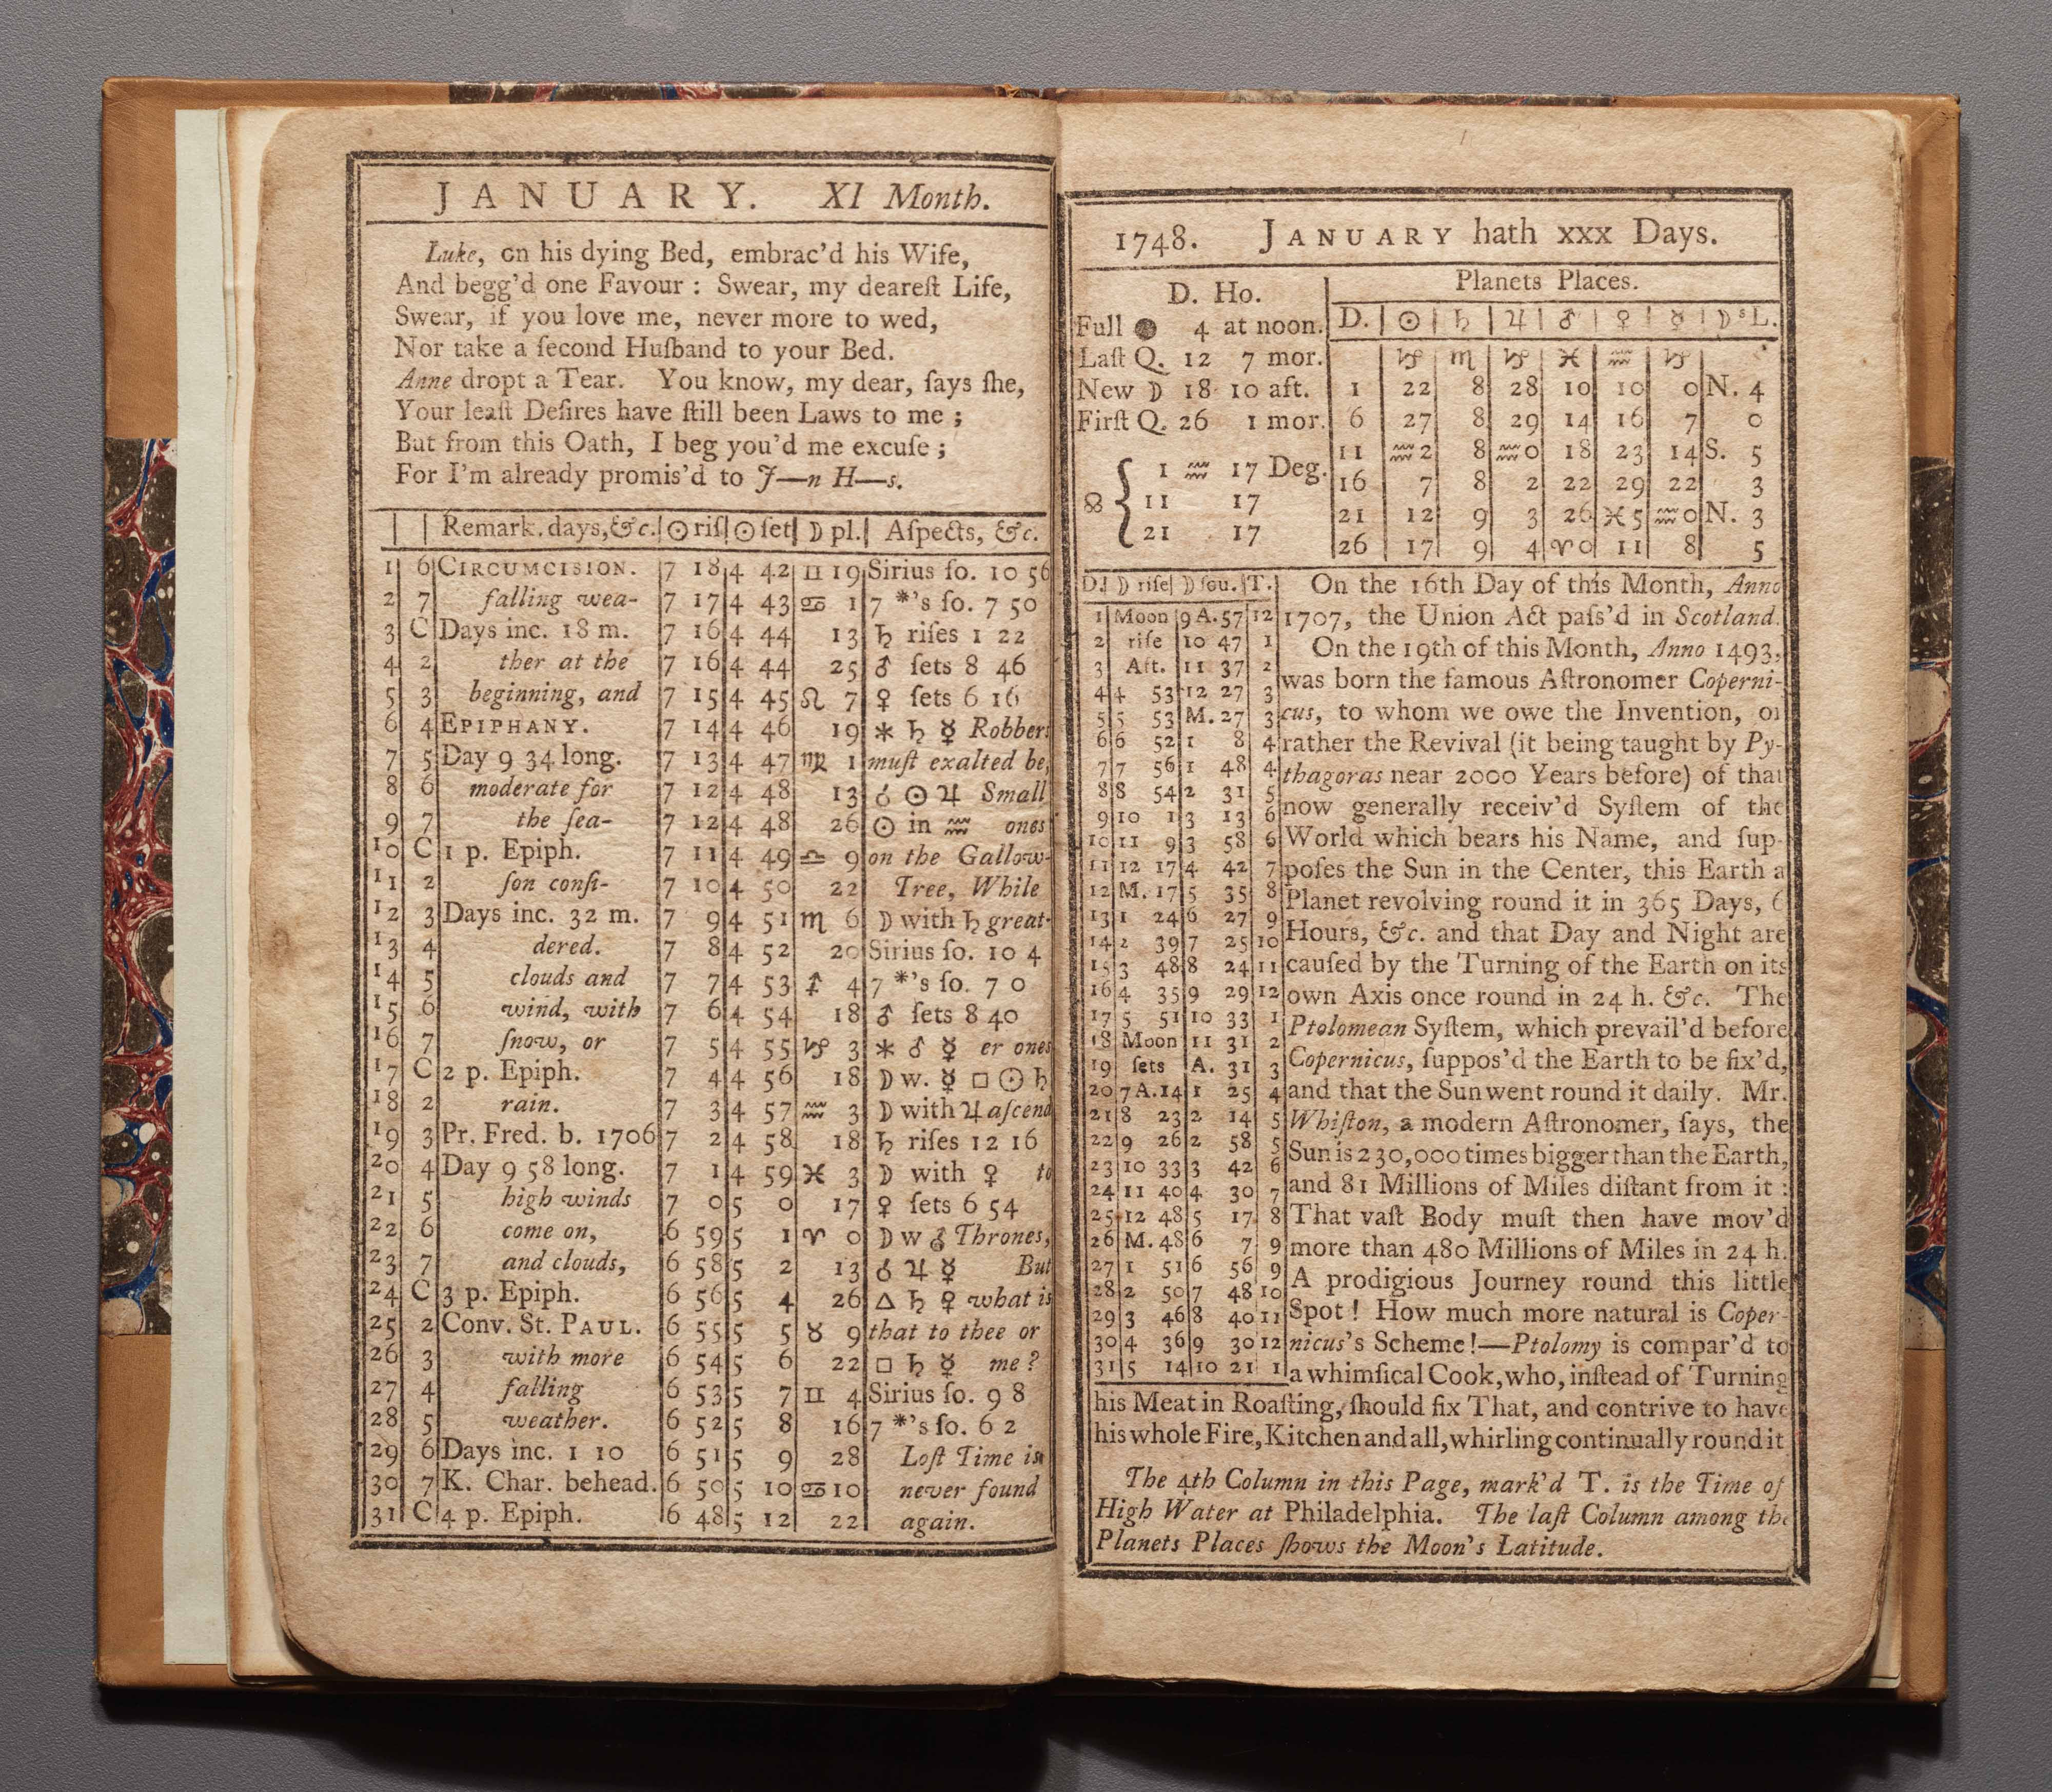 JANUARY. XI Month.
Luke, on his dying Bed, embrac'd his Wife,
And begg'd one Favour : Swear, my deareſt Life,
Swear, if you love me, never more to wed,
Nor take a ſecond Huſband to your Bed.
Anne dropt a Tear. You know, my dear, ſays ſhe,
Your leaſt Deſires have ſtill been Laws to me ;
But from this Oath, I beg you'd me excuſe ;
For I'm already promis'd to J—n H—s.
Remark. days, &c. ☉ riſ ☉ ſet ☽ pl. Aſpects, &c.
1 6 CIRCUMCISION. 7 18 4 42 ♊ 19 Sirius ſo. 10 56
2 7 falling wea- 7 17 4 43 ♋ 1 7 *'s ſo. 7 50
3 C Days inc. 18 m. 7 16 4 44 13 ♄ riſes 1 22
4 2 ther at the 7 16 4 44 25 ♂ ſets 8 46
5 3 beginning, and 7 15 4 45 ♌ 7 ♀ ſets 6 16
6 4 EPIPHANY. 7 14 4 46 19 ⚹ ♄ ☿ Robbers
7 5 Day 9 34 long. 7 13 4 47 ♍ 1 muſt exalted be,
8 6 moderate for 7 12 4 48 13 ☌ ☉ ♃ Small
9 7 the ſea- 7 12 4 48 26 ☉ in ♒ ones
10 C 1 p. Epiph. 7 11 4 49 ♎ 9 on the Gallow-
11 2 ſon conſi- 7 10 4 50 22 Tree, While
12 3 Days inc. 32 m. 7 9 4 51 ♏ 6 ☽ with ♄ great-
13 4 dered. 7 8 4 52 20 Sirius ſo. 10 4
14 5 clouds and 7 7 4 53 ♐ 4 7 *'s ſo. 7 0
15 6 wind, with 7 6 4 54 18 ♂ ſets 8 40
16 7 ſnow, or 7 5 4 55 ♑ 3 ⚹ ♂ ☿ er ones
17 C 2 p. Epiph. 7 4 4 56 18 ☽ w. ☿ □ ☉ ♄
18 2 rain. 7 3 4 57 ♒ 3 ☽ with ♃ aſcend
19 3 Pr. Fred. b. 1706 7 2 4 58 18 ♄ riſes 12 16
20 4 Day 9 58 long. 7 1 4 59 ♓ 3 ☽ with ♀ to
21 5 high winds 7 0 5 0 17 ♀ ſets 6 54
22 6 come on, 6 59 5 1 ♈ 0 ☽ w ♂ Thrones,
23 7 and clouds, 6 58 5 2 13 ☌ ♃ ☿ But
24 C 3 p. Epiph. 6 56 5 4 26 △ ♄ ♀ what is
25 2 Conv. St. PAUL. 6 55 5 5 ♉ 9 that to thee or
26 3 with more 6 54 5 6 22 □ ♄ ☿ me ?
27 4 falling 6 53 5 7 ♊ 4 Sirius ſo. 9 8
28 5 weather. 6 52 5 8 16 7 *'s ſo. 6 2
29 6 Days inc. 1 10 6 51 5 9 28 Loſt Time is
30 7 K. Char. behead. 6 50 5 10 ♋ 10 never found
31 C 4 p. Epiph. 6 48 5 12 22 again.
1748. JANUARY hath xxx Days.
D. Ho.
Full ● 4 at noon.
Laſt Q. 12 7 mor.
New ☽ 18 10 aft.
Firſt Q. 26 1 mor.
☊ { 1 ♒ 17 Deg.
11 17
21 17
Planets Places.
D. ☉ ♄ ♃ ♂ ♀ ☿ ☽ˢL.
♑ ♏ ♑ ♓ ♒ ♑
1 22 8 28 10 10 0 N. 4
6 27 8 29 14 16 7 0
11 ♒ 2 8 ♒ 0 18 23 14 S. 5
16 7 8 2 22 29 22 3
21 12 9 3 26 ♓ 5 ♒ 0 N. 3
26 17 9 4 ♈ 0 11 8 5
D. ☽ riſe ☽ ſou. T.
1 Moon 9 A. 57 12
2 riſe 10 47 1
3 Aft. 11 37 2
4 4 53 12 27 3
5 5 53 M. 27 3
6 6 52 1 8 4
7 7 56 1 48 4
8 8 54 2 31 5
9 10 1 3 13 6
10 11 9 3 58 6
11 12 17 4 42 7
12 M. 17 5 35 8
13 1 24 6 27 9
14 2 39 7 25 10
15 3 48 8 24 11
16 4 35 9 29 12
17 5 51 10 33 1
18 Moon 11 31 2
19 ſets A. 31 3
20 7 A. 14 1 25 4
21 8 23 2 14 5
22 9 26 2 58 5
23 10 33 3 42 6
24 11 40 4 30 7
25 12 48 5 17 8
26 M. 48 6 7 9
27 1 51 6 56 9
28 2 50 7 48 10
29 3 46 8 40 11
30 4 36 9 30 12
31 5 14 10 21 1
On the 16th Day of this Month, Anno
1707, the Union Act paſs'd in Scotland.
On the 19th of this Month, Anno 1493,
was born the famous Aſtronomer Coperni-
cus, to whom we owe the Invention, or
rather the Revival (it being taught by Py-
thagoras near 2000 Years before) of that
now generally receiv'd Syſtem of the
World which bears his Name, and ſup-
poſes the Sun in the Center, this Earth a
Planet revolving round it in 365 Days, 6
Hours, &c. and that Day and Night are
cauſed by the Turning of the Earth on its
own Axis once round in 24 h. &c. The
Ptolomean Syſtem, which prevail'd before
Copernicus, ſuppos'd the Earth to be fix'd,
and that the Sun went round it daily. Mr.
Whiſton, a modern Aſtronomer, ſays, the
Sun is 230,000 times bigger than the Earth,
and 81 Millions of Miles diſtant from it :
That vaſt Body muſt then have mov'd
more than 480 Millions of Miles in 24 h.
A prodigious Journey round this little
Spot ! How much more natural is Coper-
nicus's Scheme !—Ptolomy is compar'd to
a whimſical Cook, who, inſtead of Turning
his Meat in Roaſting, ſhould fix That, and contrive to have
his whole Fire, Kitchen and all, whirling continually round it
The 4th Column in this Page, mark'd T. is the Time of
High Water at Philadelphia. The laſt Column among the
Planets Places ſhows the Moon's Latitude.